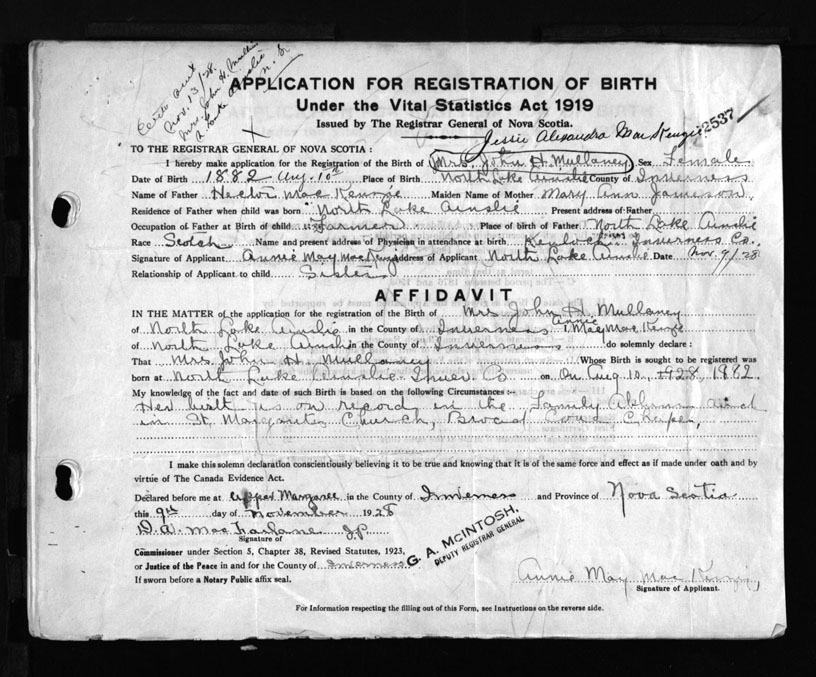 Nov. 13/28.
Mrs. John H. Mullaney
N. S.
APPLICATION FOR REGISTRATION OF BIRTH
Under the Vital Statistics Act 1919
Issued by The Registrar General of Nova Scotia.
Jessie Alexandra MacKenzie 2537
TO THE REGISTRAR GENERAL OF NOVA SCOTIA :
I hereby make application for the Registration of the Birth of Mrs. John H. Mullaney Sex Female
Date of Birth 1882 Aug. 10th Place of Birth North Lake Ainslie County of Inverness
Name of Father Hector MacKenzie Maiden Name of Mother Mary Ann Jameson
Residence of Father when child was born North Lake Ainslie Present address of Father
Occupation of Father at Birth of child Farmer Place of birth of Father North Lake Ainslie
Race Scotch Name and present address of Physician in attendance at birth Inverness Co.
Signature of Applicant Annie May MacKenzie Address of Applicant North Lake Ainslie Date Nov. 9/28
Relationship of Applicant to child Sister
AFFIDAVIT
IN THE MATTER of the application for the registration of the Birth of Mrs John H. Mullaney
of North Lake Ainslie in the County of Inverness I Annie May MacKenzie
of North Lake Ainslie in the County of Inverness do solemnly declare :
That Mrs. John H. Mullaney Whose Birth is sought to be registered was
born at North Lake Ainslie Inver. Co on On Aug 10, 1928 1882
My knowledge of the fact and date of such Birth is based on the following Circumstances :-
Her birth is on record in the Family and
in St. Margarets Church, Broad Cove Chapel,
I make this solemn declaration conscientiously believing it to be true and knowing that it is of the same force and effect as if made under oath and by
virtue of The Canada Evidence Act.
Declared before me at Upper Margaree in the County of Inverness and Province of Nova Scotia
this 9th day of November 1928
D. A. MacFarlane J.P.
Signature of
Commissioner under Section 5, Chapter 38, Revised Statutes, 1923,
or Justice of the Peace in and for the County of Inverness
If sworn before a Notary Public affix seal.
G. A. McINTOSH,
DEPUTY REGISTRAR GENERAL
Annie May MacKenzie,
Signature of Applicant.
For Information respecting the filling out of this Form, see Instructions on the reverse side.